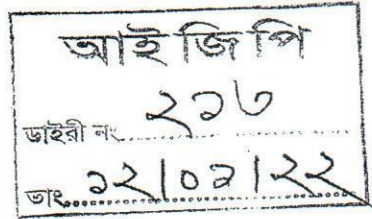 আই জি পি
ডাইরী নং ২১৩
তাং ১২|০১|২২